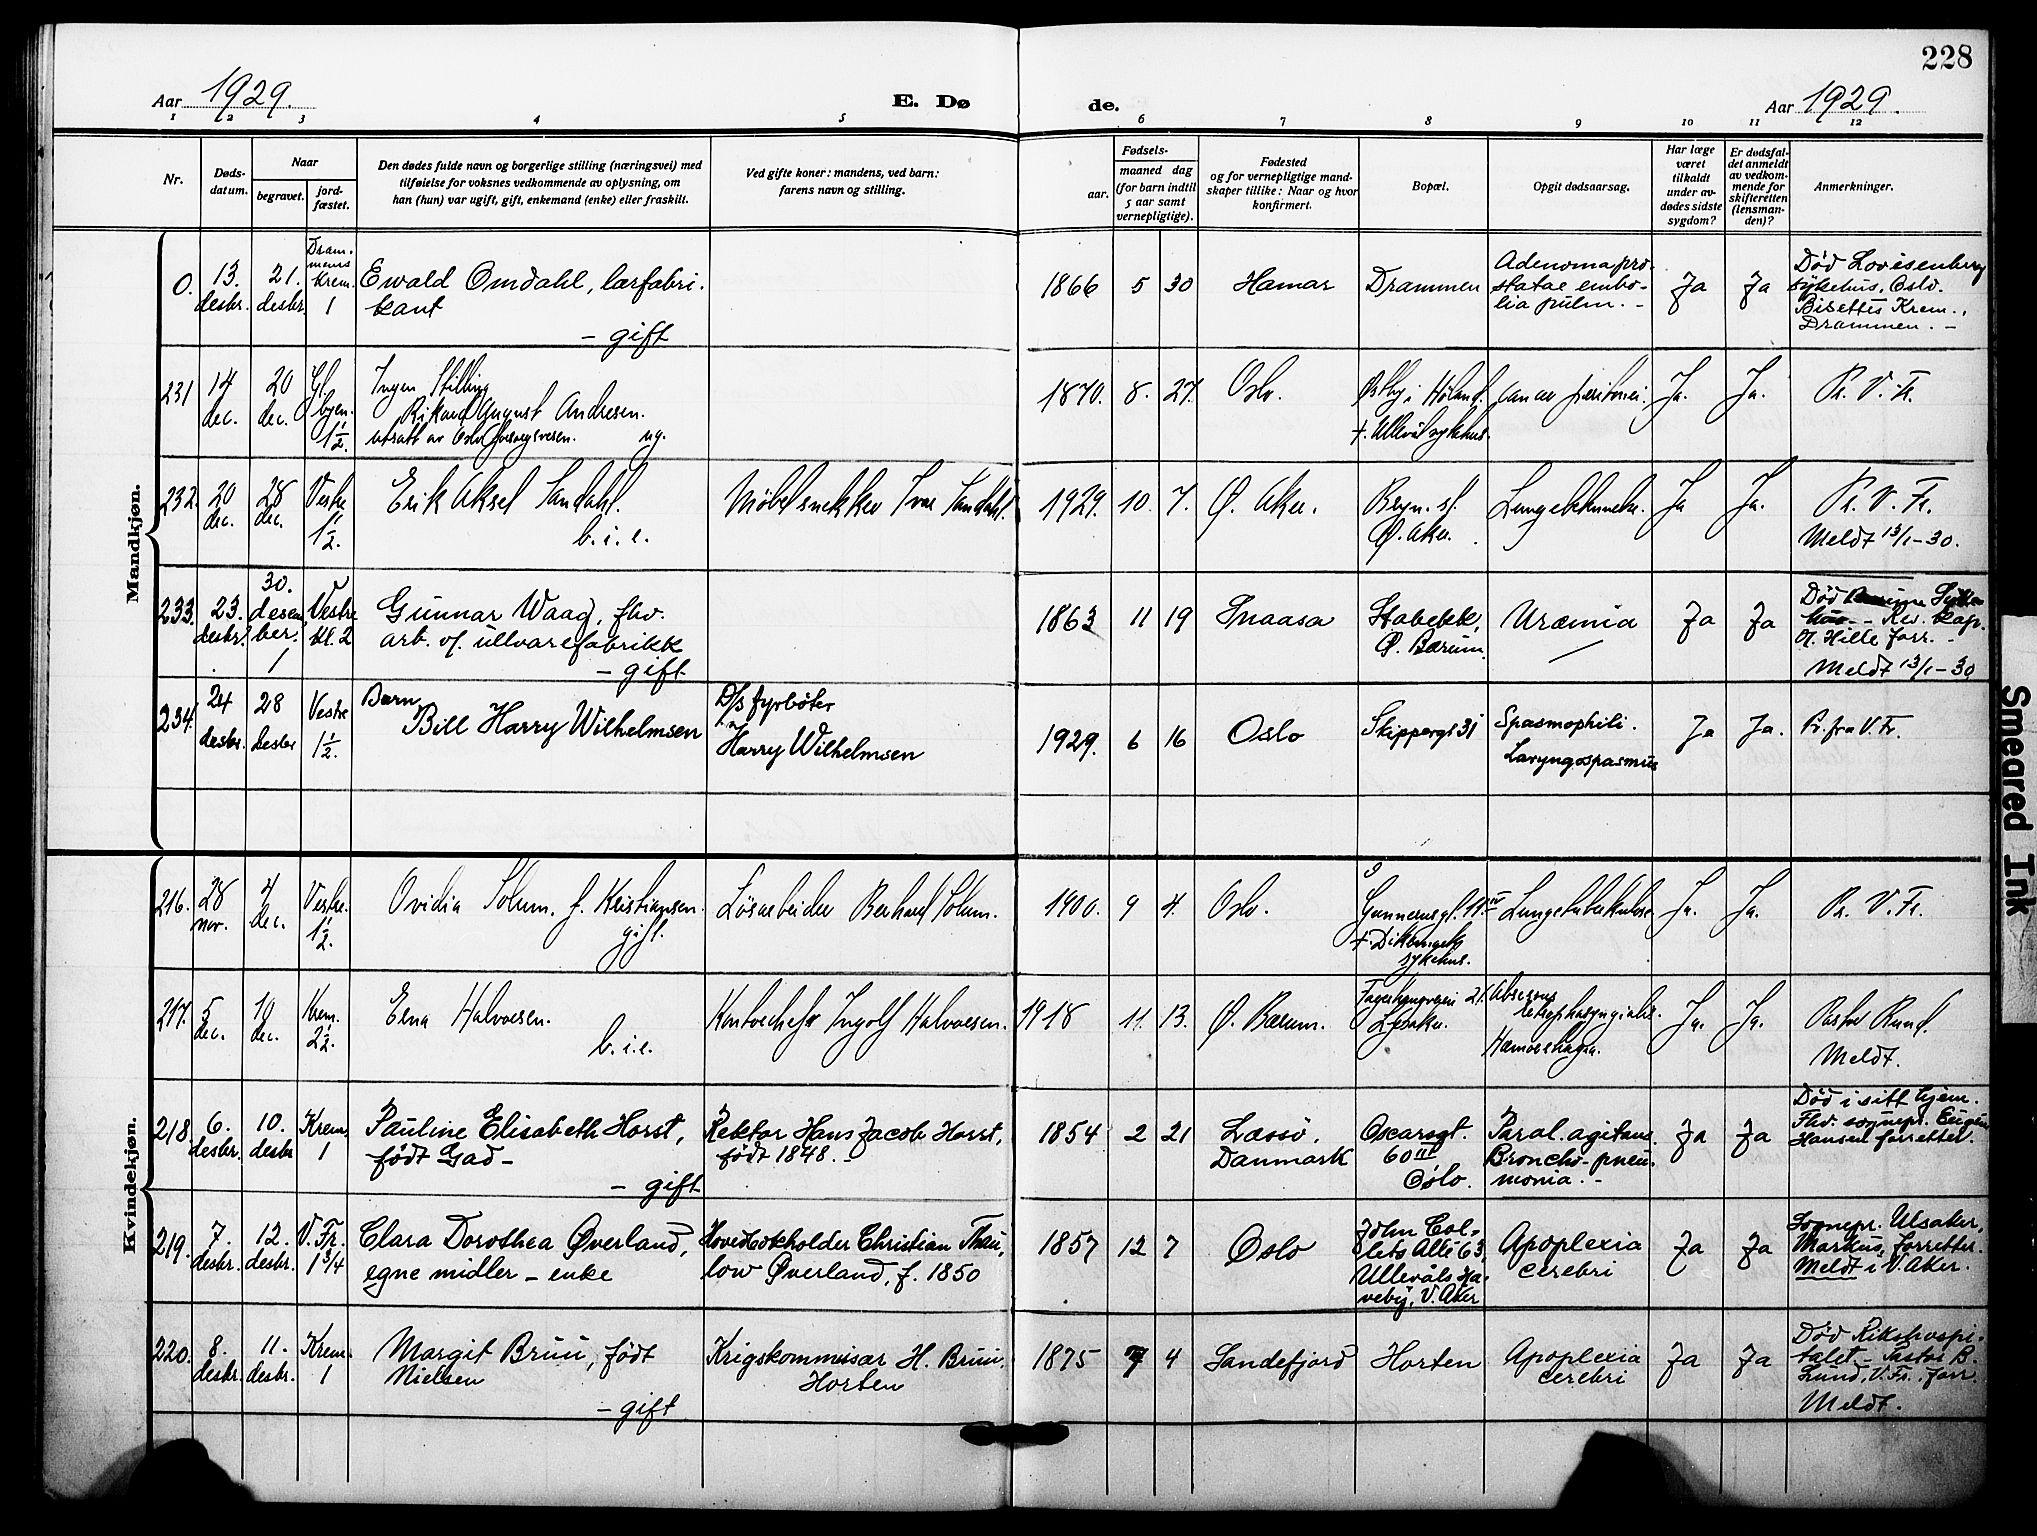 228
Aar 1929.
E. Dø
de.
Aar 1929.
1 2 3 4 5 6 7 8 9 10 11 12
Nr.
Døds-
datum.
Naar
begravet.
jord-
fæstet.
Den dødes fulde navn og borgerlige stilling (næringsvei) med
tilføielse for voksnes vedkommende av oplysning, om
han (hun) var ugift, gift, enkemand (enke) eller fraskilt.
Ved gifte koner: mandens, ved barn:
farens navn og stilling.
Fødsels-
aar.
maaned dag
(for barn indtil
5 aar samt
vernepligtige).
Fødested
og for vernepligtige mand-
skaper tillike: Naar og hvor
konfirmert.
Bopæl.
Opgit dødsaarsag.
Har læge
været
tilkaldt
under av-
dødes sidste
sygdom?
Er dødsfal-
det anmeldt
av vedkom-
mende for
skifteretten
(lensman-
den)?
Anmerkninger.
Mandkjøn.
0.
13.
desbr.
21.
desbr.
Dram-
mens
Krem.
1
Ewald Omdahl, lærfabri-
kant
- gift
1866 5 30
Hamar
Drammen
Adenoma pro-
statae embo-
lia pulm. -
Ja
Ja
Død Lovisenberg
sykehus, Oslo.
Bisettes Krem.,
Drammen. -
231
14
dec.
20
dec.
Gl.
byen.
1½.
Ingen Stilling
Rikard August Andresen.
ug.
1870. 8. 27.
Oslo.
Østby i Høland.
†. Ullevål sykehus.
Cancer peritonei.
Ja.
Ja.
Pr. V. Fr.
232.
20
dec.
28
dec.
Vestre
1½.
Erik Aksel Sandahl.
b. i. e.
Møbelsnekker Ivar Sandahl.
1929. 10. 7.
Ø. Aker.
Bryn. st.
Ø. Aker.
Lungebetennelse.
Ja
Ja.
Pr. V. Fr.
Meldt 13/1-30.
233.
23.
desbr.
30.
desem-
ber.
1
Vestre
kl. 2
Gunnar Waag, fhv.
arb. v/. ullvarefabrikk
- gift
1863 11 19
Snaasa
Stabekk,
Ø. Bærum.
Uræmia
Ja
Ja
Død Bærums Syke-
hus - Res. kap.
O. Hille forr. -
Meldt 13/1-30
234.
24
desbr.
28
desbr
Vestre
1½.
Barn
Bill Harry Wilhelmsen
D/s fyrbøter
Harry Wilhelmsen
1929. 6 16
Oslo
Skippergt 31
Spasmophili.
Laryngospasmus
Ja
Ja.
Pr. fra V. Fr.
Kvindekjøn.
216.
28
nov.
4
dec.
Vestre.
1½.
Ovidia Solum. f. Kristiansen.
gift.
Løsarbeider Berhard Solum.
1900. 9 4.
Oslo.
Gunnerusgt. 11 IV
†. Dikemark
sykehus.
Lungetuberkulose.
Ja.
Ja.
Pr. V. Fr.
217.
5
dec.
10
dec.
Krem.
2½.
Erna Halvorsen.
b. i. e.
Kontorchef Ingolf Halvorsen.
1918 11. 13.
Ø. Bærum.
Lysaker.
Absessus
retropharyngialis.
Hæmorrhagia.
Ja.
Ja.
Pastor Rund.
Meldt.
218.
6.
desbr.
10.
desbr
Krem.
1
Pauline Elisabeth Horst,
født Gad -
- gift
Rektor Hans Jacob Horst,
født 1848. -
1854 2 21
Læssö,
Danmark
Oscarsgt.
60 III
Oslo.
Paral. agitans.
Broncho-pneu-
monia. -
Ja
Ja
Død i sitt hjem.
Fhv. sognepr. Eugen
Hansen forretter.
219.
7.
desbr.
12.
desbr.
V. Fr.
1 3/4
Clara Dorothea Øverland,
egne midler - enke
Hovedbokholder Christian Thau-
low Øverland, f. 1850
1857 12 7
Oslo
John Col-
letts Allé 63,
Ullevåls Ha-
veby, V. Aker
Apoplexia
cerebri
Ja
Ja
Sognepr. Ulsaker,
Markus, forretter.
Meldt i V. Aker.
220.
8.
desbr.
11.
desbr.
Krem.
1
Margit Bruu, født
Nielsen
- gift
Krigskommisær H. Bruu,
Horten
1875 7 4
Sandefjord
Horten
Apoplexia
cerebri
Ja
Ja
Død Rikshospi-
talet - Pastor B.
Lund, V. Fr., forr.
Meldt.
Smeared Ink